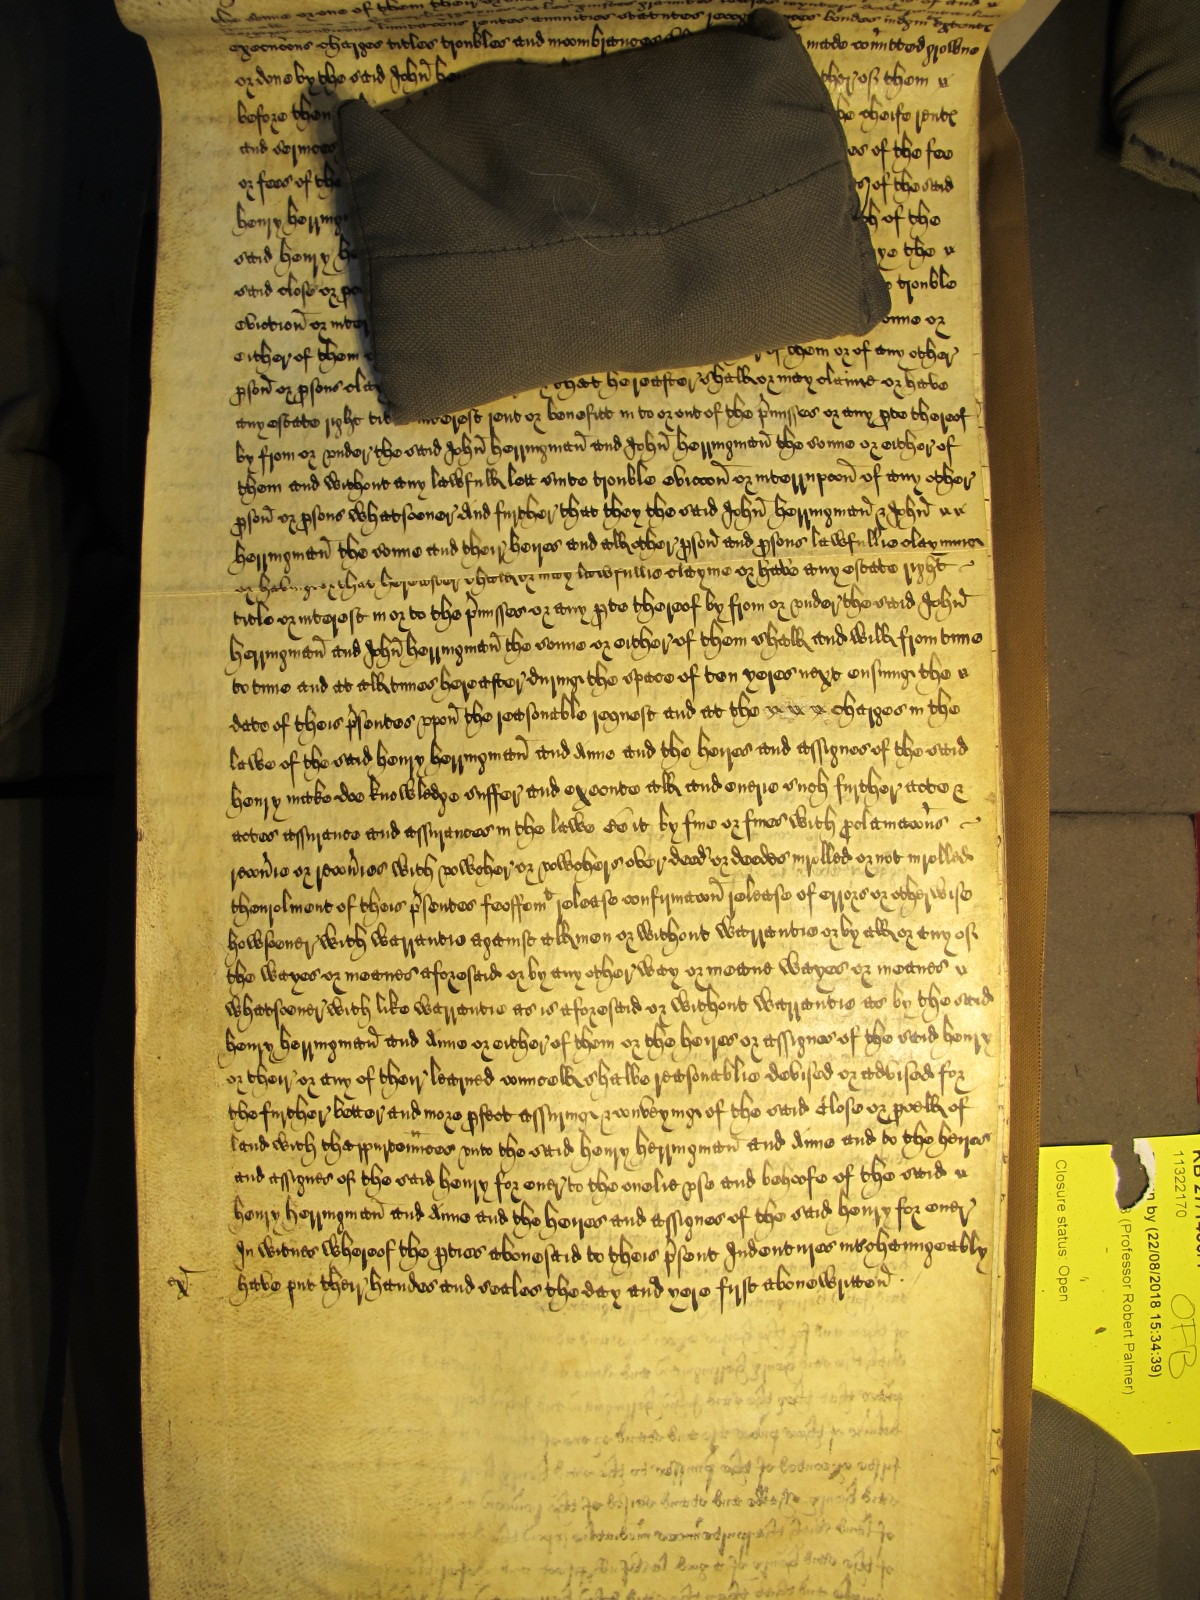 the sonne or one of them their or
execucons charges titles troubles and incombrances made comitted
or done by the said John̄ of them
before them cheife rente
and services of the fee
or fees of the of the said
henry herringm of the
said henry he the
said close or p trouble
eviction̄ or inter sonne or
either of them of them or of any other
pson̄ or psons cla that hereafter shall or may claime or have
any estate right titl interest rent or benefitt in to or out of the p̄misses or any pte thereof
by from or vnder the said John̄ herringman̄ and John̄ herringman̄ the sonne or either of
them and without any lawfull lett suite trouble eviccon̄ or interrupcon̄ of any other
pson̄ or psons whatsoeuer And further that they the said John̄ herringman̄ & John̄
herringman̄ the sonne and their heires and all other pson̄ and psons lawfullie clayminge
or havinge or that hereafter shall or may lawfullie clayme or have any estate right
title or interest in or to the p̄misses or any pte thereof by from or vnder the said John̄
herringman̄ and John̄ herringman̄ the sonne or either of them shall and will from time
to time and at all times hereafter duringe the space of ten yeres next ensuinge the
date of theis p̄sentes vpon̄ the reasonable request and at the charges in the
lawe of the said henry herringman̄ and Anne and the heires and assignes of the said
henry make doe knowledge suffer and execute all and euerie such further acte &
actes assurance and assurances in the lawe be it by fine or fines with proclamacōns
recoūie or recoūies with vowcher or vowchers over deed or deedes inrolled or not inrolled
thenrolment of theis p̄sentes feoffemt release confirmacon̄ release of errors or otherwise
howsoeuer with warrantie against all men or without warrantie or by all or any of
the wayes or meanes aforesaid or by any other way or meane wayes or meanes
whatsoeuer with like warrantie as is aforesaid or without warrantie as by the said
henry herringman̄ and Anne or either of them or the heires or assignes of the said henry
or their or any of their learned councell shalbe reasonablie devised or advised for
the further better and more pfect assuringe & conveyinge of the said Close or pcell of
land with thappurtenn̄ces vnto the said henry herringman̄ and Anne and to the heires
and assignes of the said henry for euer to the onelie vse and behoofe of the said
henry herringman̄ and Anne and the heires and assignes of the said henry for euer
In witnes whereof the pties abouesaid to theis p̄sent Indentures interchaungeably
have put their handes and seales the day and yere first abouewritten̄
ex
11322170
n by (22/08/2018 15:34:39)
(Professor Robert Palmer)
Closure status: Open
OFB